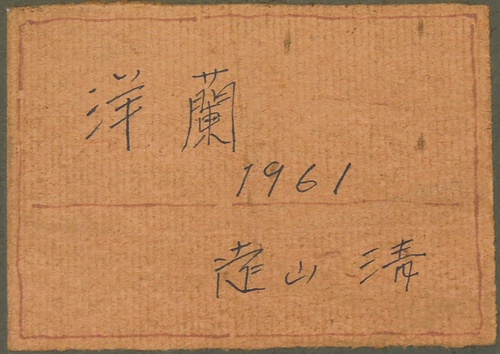 洋蘭
1961
遠山 清